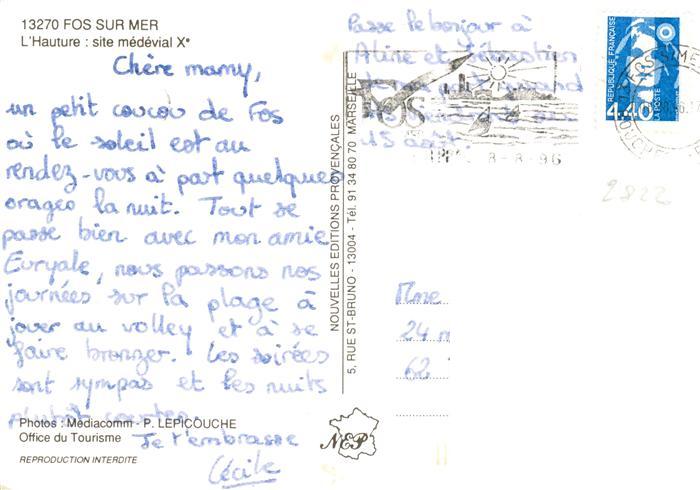 13270 FOS SUR MER
L'Hauture : site médévial Xᵉ
Chère mamy,
un petit coucou de Fos
où le soleil est au
rendez-vous à part quelques
orages la nuit. Tout se
passe bien avec mon amie
Euryale, nous passons nos
journées sur la plage à
jouer au volley et à se
faire bronzer. Les soirées
sont sympas et les nuits
plutôt courtes.
Photos : Médiacomm - P. LEPICOUCHE
Office du Tourisme
Je t'embrasse
REPRODUCTION INTERDITE
Cécile
NOUVELLES EDITIONS PROVENÇALES
5, RUE ST-BRUNO - 13004 - Tél. 91 34 80 70 MARSEILLE
NEP
Passe le bonjour à
Aline et Sébastien
15 août.
FOS
8-8-96
REPUBLIQUE FRANÇAISE
LA POSTE
4,40
2822
Mme
24
62